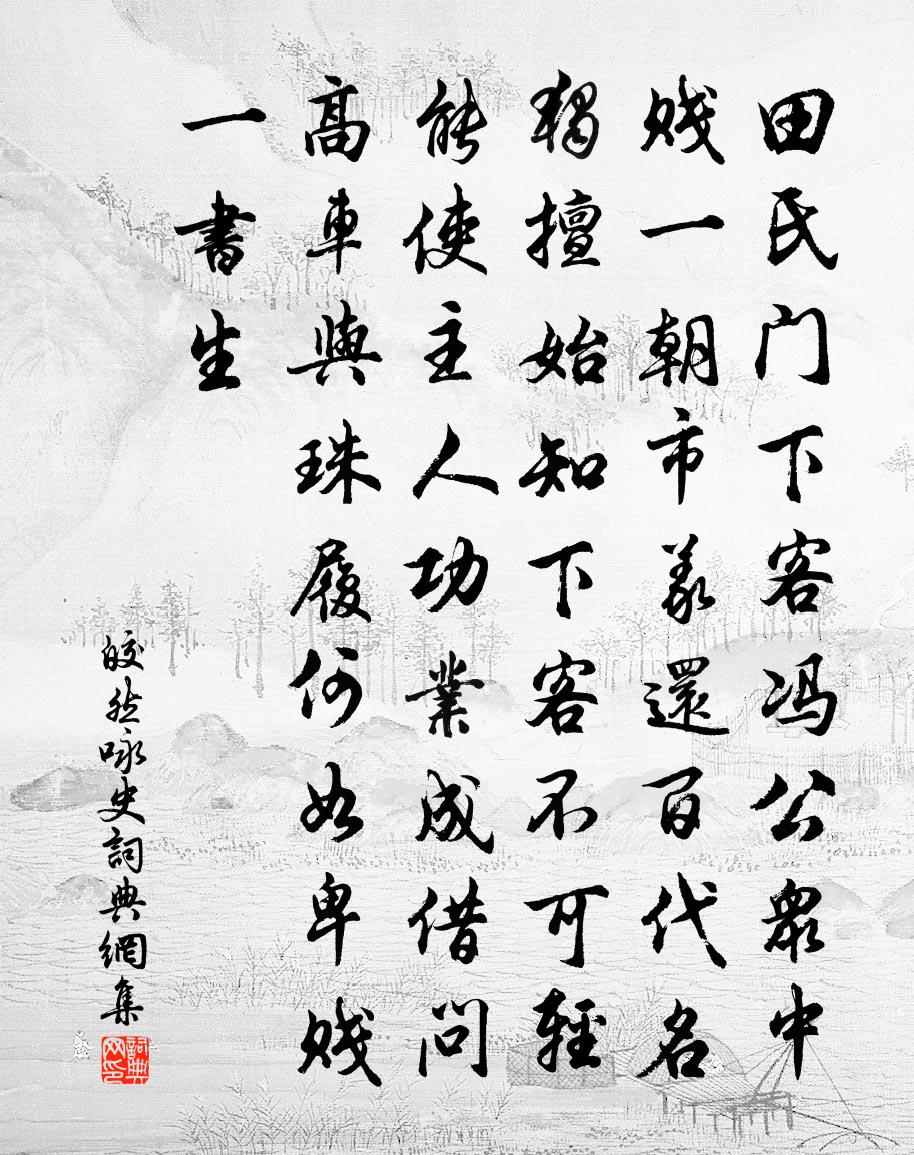 田氏门下客冯公众中
贱一朝市义还百代名
独擅始知下客不可轻
能使主人功业成借问
高车与珠履何如卑贱
一书生
皎然咏史词典网集
词典网印